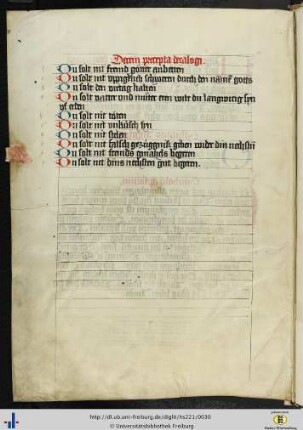 Decem precepta decalogi.
Du solt nit fremd götter anbetten
Du solt nit üppigklich schweren durch den namē gotts
Du solt den virtag halten
Du solt vatter und mütter eren wilt du langwirig syn
uf erden
Du solt nit töten
Du solt nit unküsch syn
Du solt nit stelen
Du solt nit falsch gezüggnisß geben wider din nechstē
Du solt nit frömds gemahels begeren
Du solt nit dins nechsten gut begeren.
http://dl.ub.uni-freiburg.de/diglit/hs221/0030
© Universitätsbibliothek Freiburg